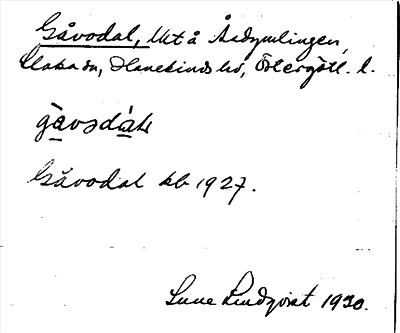 Gåvodal, lht å Årdymlingen,
Slaka sn, Hanekinds hd, Östergötl. l.
gåvɔdàl
Gåvodal kb 1927.
Sune Lindqvist 1930.